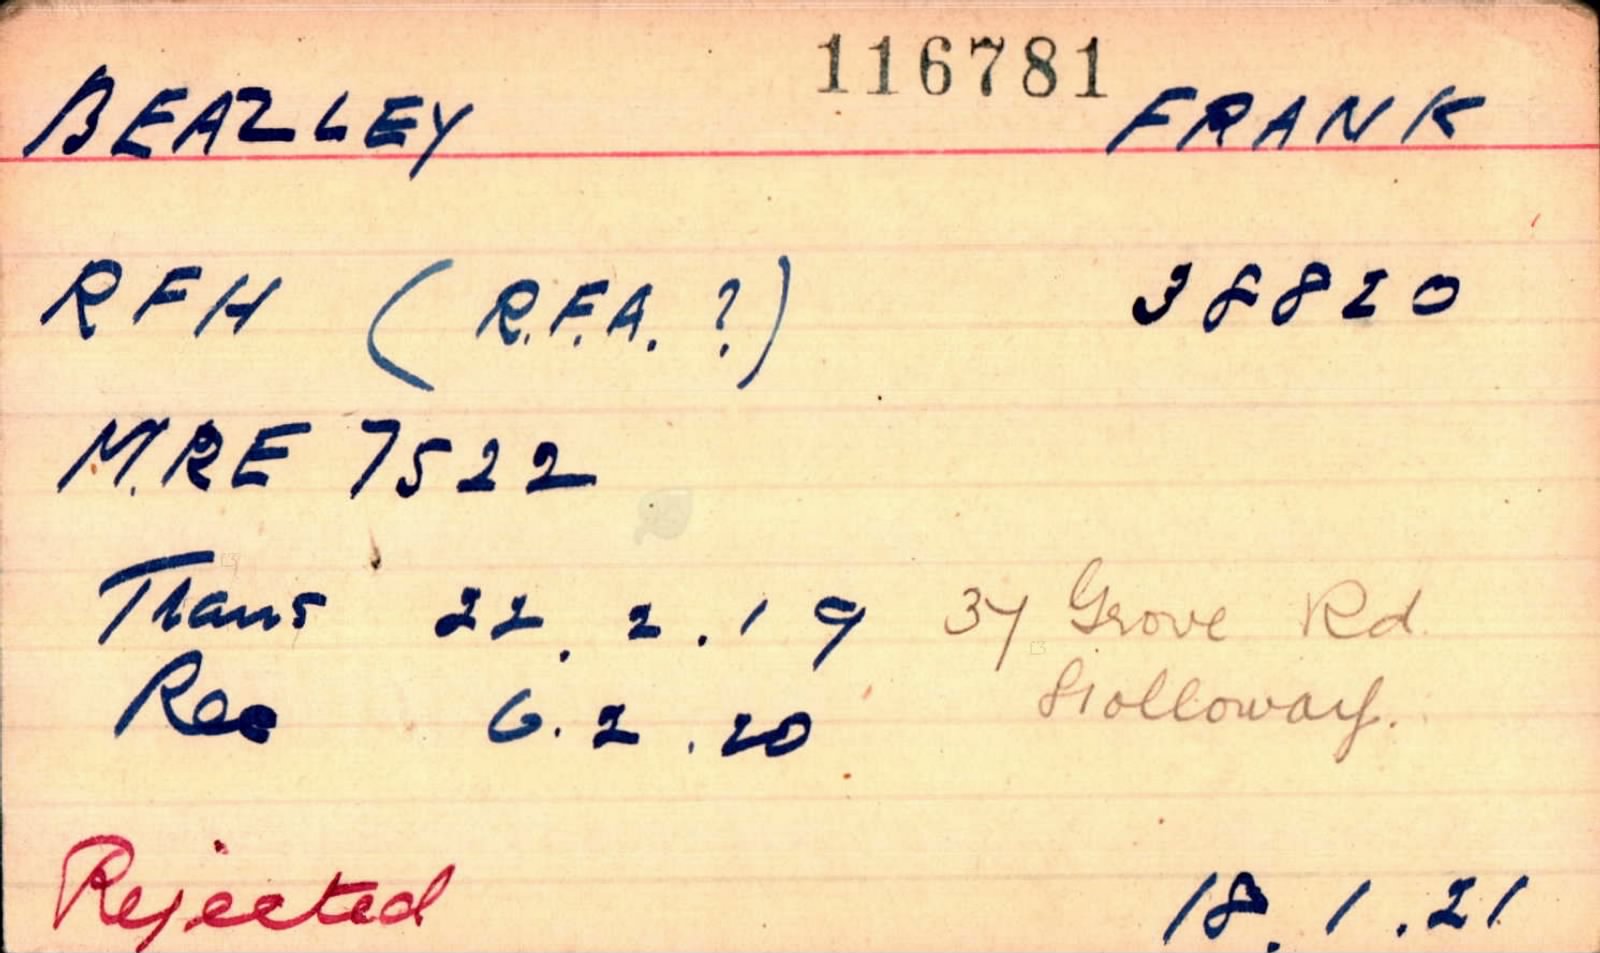 116781
BEAZLEY FRANK
RFH (R.F.A. ?) 38820
M.RE 7522
Trans 22.2.19 37 Grove Rd
Holloway.
Rec 6.2.20
Rejected 18.1.21